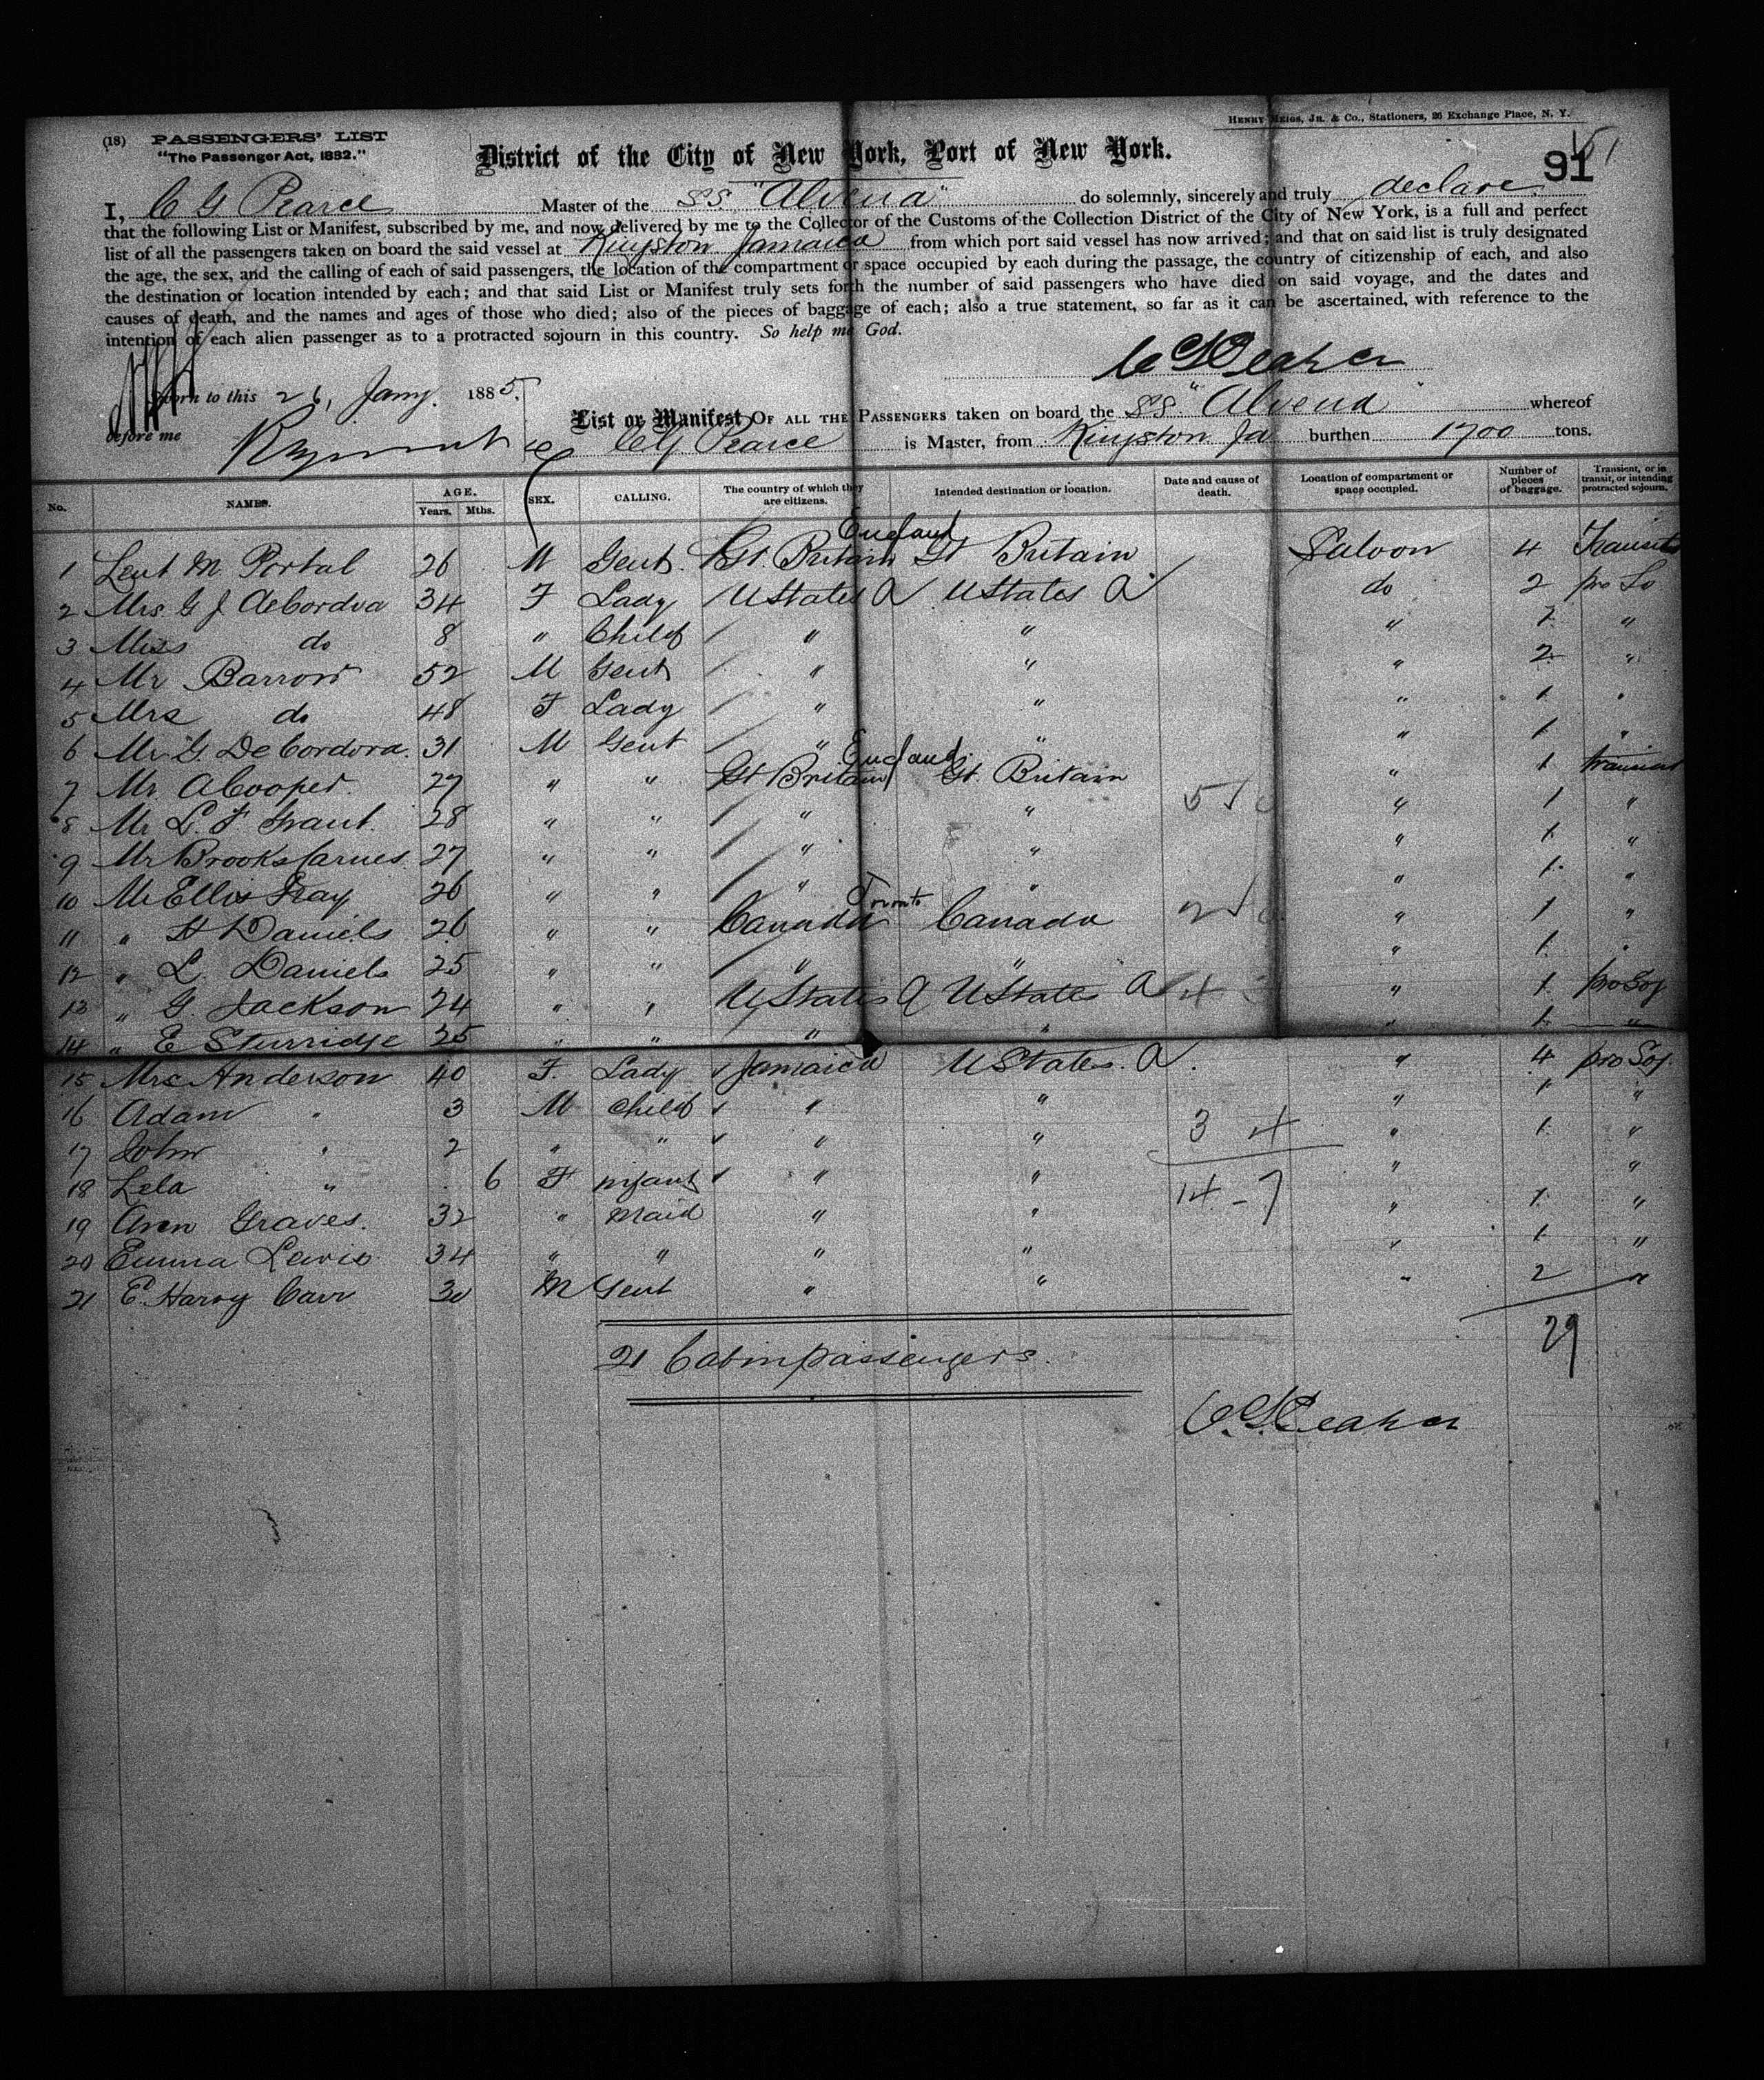 (18) PASSENGERS' LIST
"The Passenger Act, 1882."
HENRY MEIGS, JR. & Co., Stationers, 26 Exchange Place, N. Y.
District of the City of New York, Port of New York.
91
I, C G Pearce Master of the SS "Alvena" do solemnly, sincerely and truly declare
that the following List or Manifest, subscribed by me, and now delivered by me to the Collector of the Customs of the Collection District of the City of New York, is a full and perfect
list of all the passengers taken on board the said vessel at Kingston Jamaica from which port said vessel has now arrived; and that on said list is truly designated
the age, the sex, and the calling of each of said passengers, the location of the compartment or space occupied by each during the passage, the country of citizenship of each, and also
the destination or location intended by each; and that said List or Manifest truly sets forth the number of said passengers who have died on said voyage, and the dates and
causes of death, and the names and ages of those who died; also of the pieces of baggage of each; also a true statement, so far as it can be ascertained, with reference to the
intention of each alien passenger as to a protracted sojourn in this country. So help me God.
Sworn to this 26, Jany. 1885,
before me
List or Manifest OF ALL THE PASSENGERS taken on board the SS "Alvena" whereof
C G Pearce is Master, from Kingston Ja burthen 1700 tons.
No. NAMES. AGE. Years. Mths. SEX. CALLING. The country of which they are citizens. Intended destination or location. Date and cause of death. Location of compartment or space occupied. Number of pieces of baggage. Transient, or in transit, or intending protracted sojourn.
England
1 Leut M Portal 26 M Gent. Gt. Britain Gt Britain Saloon 4 Transit
2 Mrs. G J deCordva 34 F Lady UStates A UStates A do 2 pro So
3 Miss do 8 " Child " " " 1 "
4 Mr Barrow 52 M Gent " " " 2 "
5 Mrs do 48 F Lady " " " 1 "
6 Mr G. DeCordova 31 M Gent " " " 1 "
England
7 Mr. A Cooper 27 " " Gt Britain Gt. Britain " 1 transient
8 Mr L. F. Grant. 28 " " " " " 1 "
9 Mr Brooks Carnes 27 " " " " " 1 "
10 Mr Ellis Gray 26 " " " " " 1 "
Toronto
11 " H Daniels 26 " " Canada Canada " 1 "
12 " L. Daniels 25 " " " " " 1 "
13 " G. Jackson 24 " " UStates A UStates A " 1 pro Soj
14 " E Sturridge 25 " " " " " 1 "
15 Mrs Anderson 40 F. Lady Jamaica UStates. A. " 4 pro Soj
16 Adam " 3 M Child " " " 1 "
17 John " 2 " " " " " 1 "
3 4
18 Lela " 6 F infant " " " "
14 - 7
19 Ann Graves. 32 " Maid " " " 1 "
20 Emma Lewis 34 " " " " " 1 "
21 E. Harry Carr 30 M Gent " " " 2 "
29
21 Cabin passengers